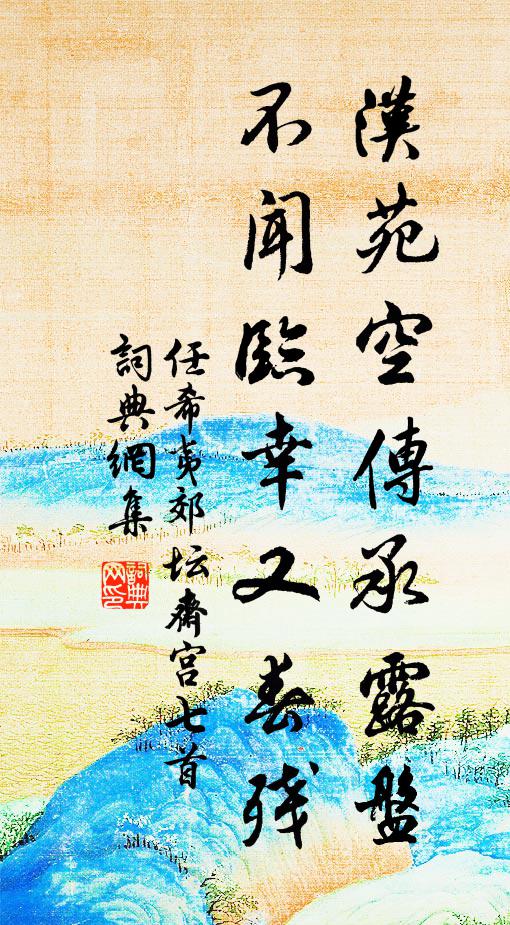 漢苑空傳承露盤
不聞臨幸又春残
任希夷郊坛齋宫七首
詞典網集
詞典網印